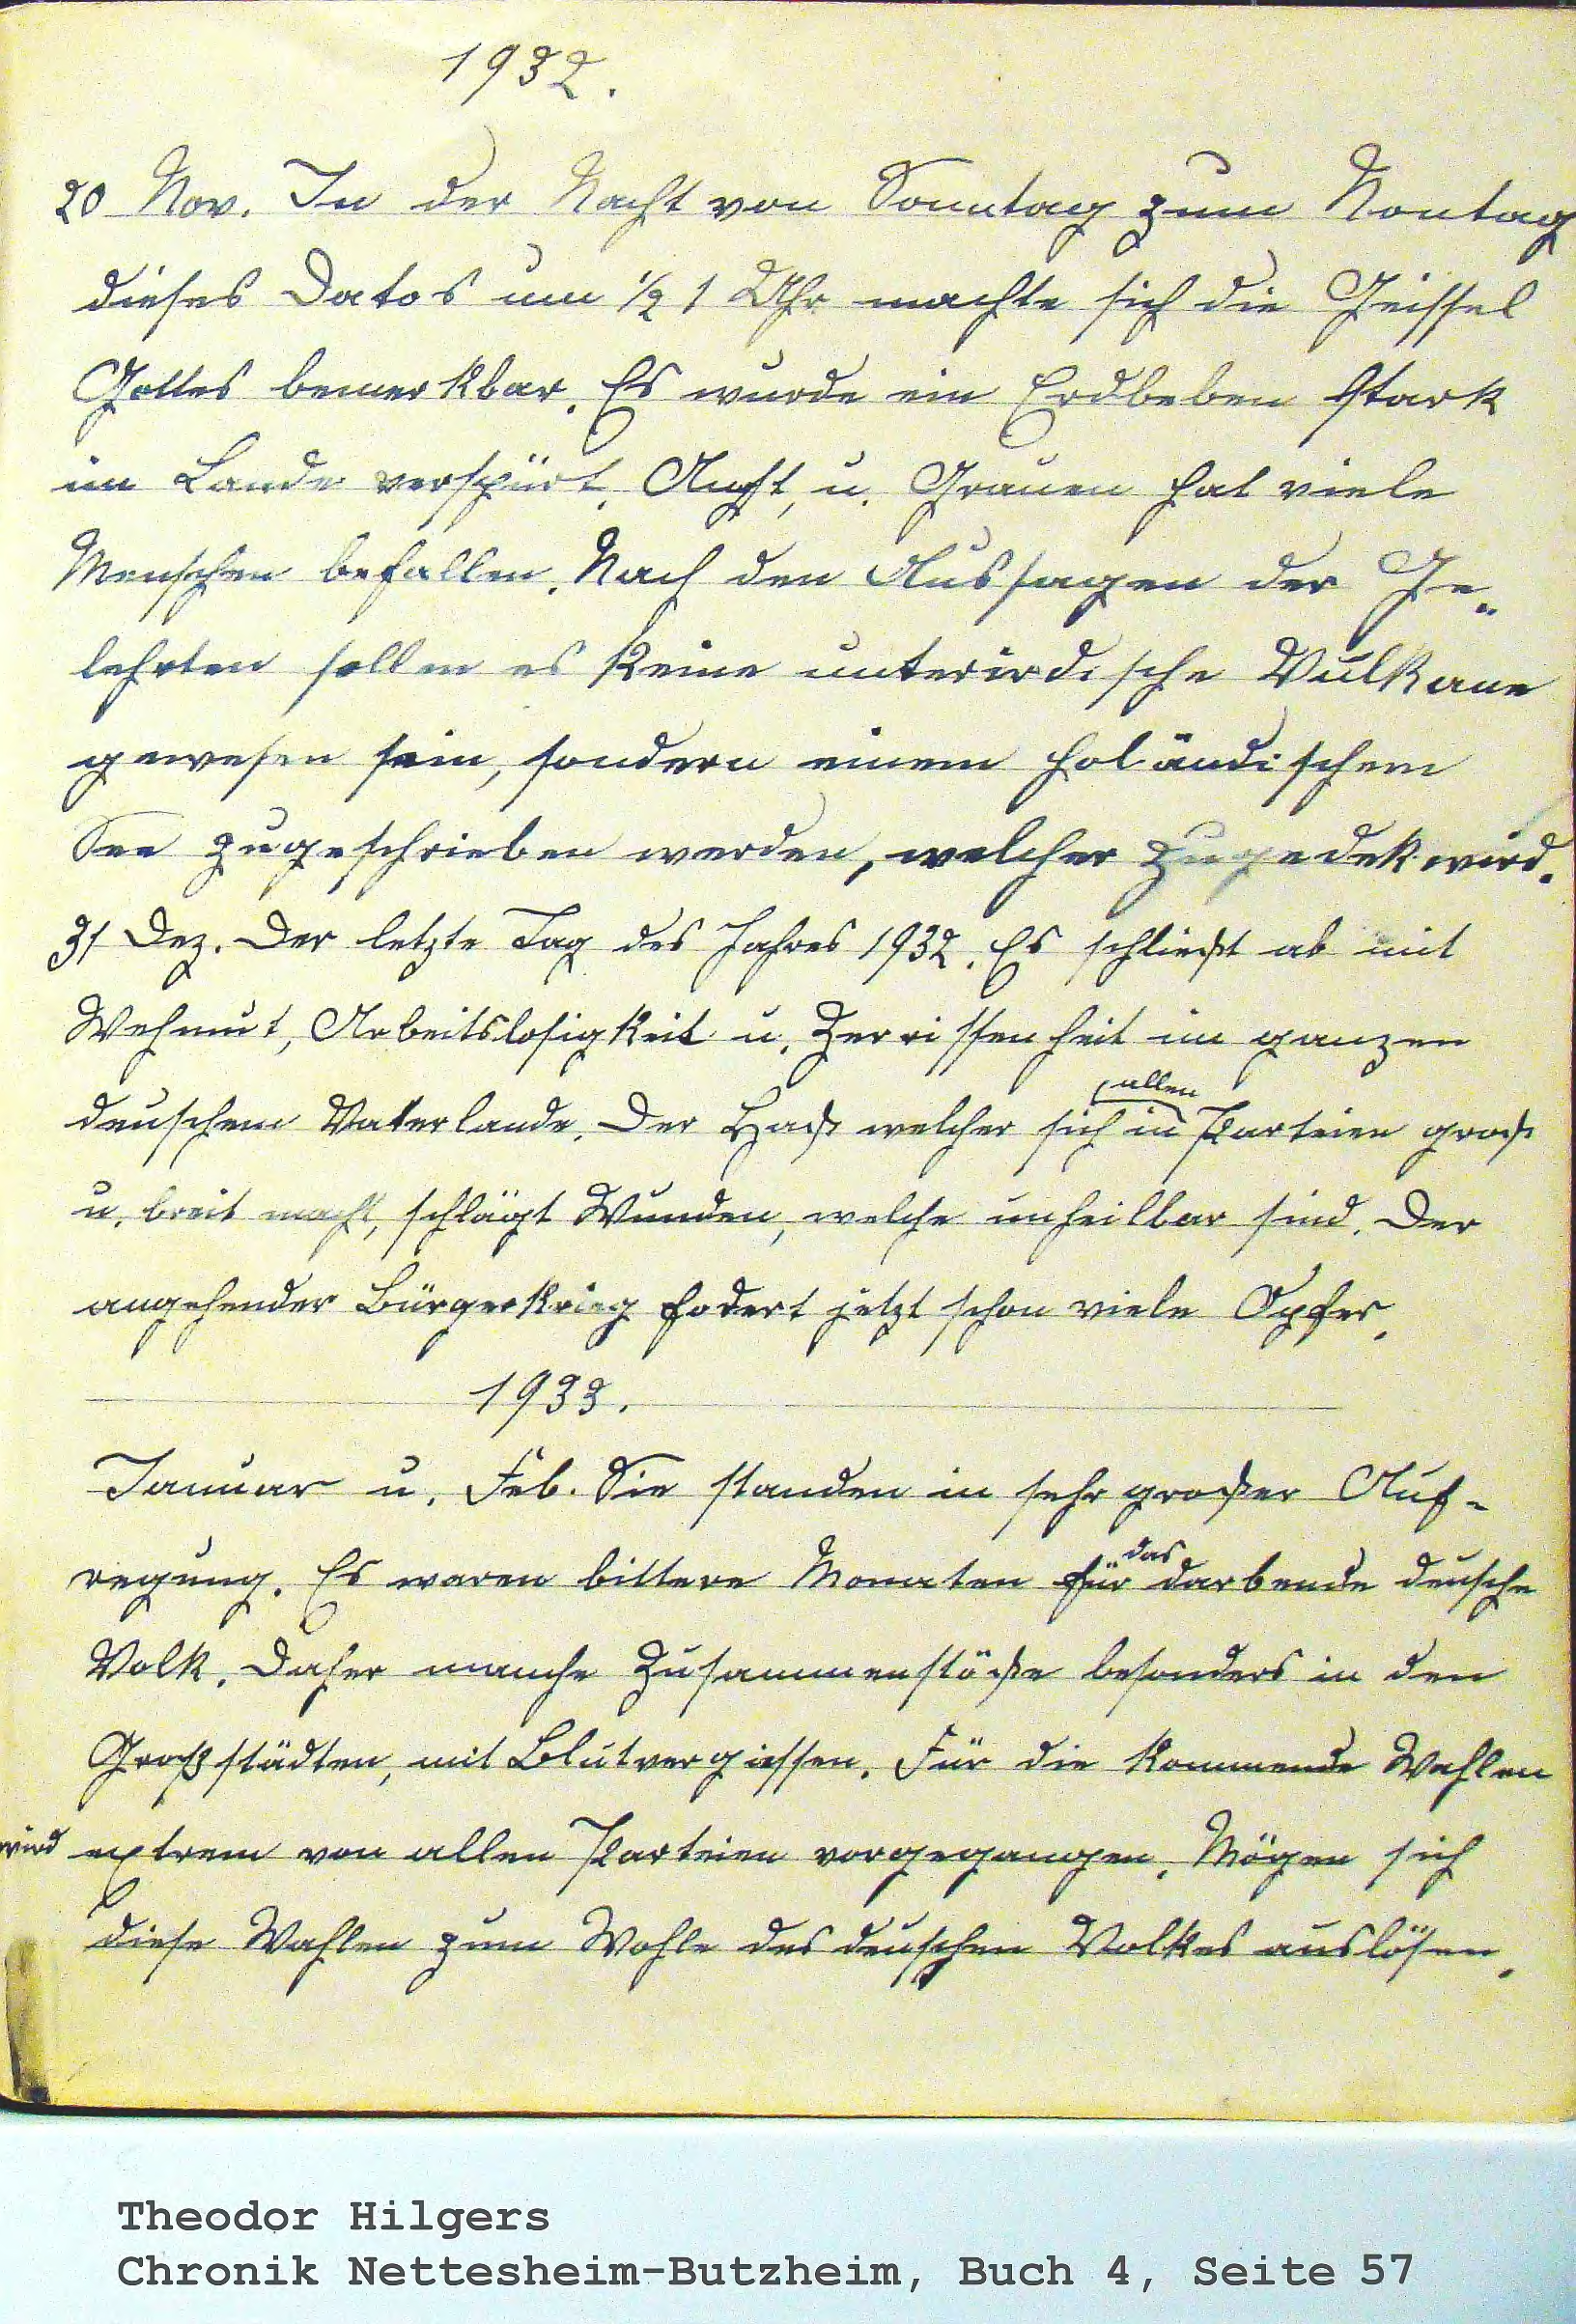 1932.
20 Nov. In der Nacht von Sonntag zum Montag
dieses Datos um ½ 1 Uhr machte sich die Geissel
Gottes bemerkbar. Es wurde ein Erdbeben stark
im Lande verspürt. Angst, u. Grauen hat viele
Menschen befallen. Nach den Aussagen der Ge„
lehrten sollen es keine unterirdische Vulkane
gewesen sein, sondern einem holändischem
See zugeschrieben werden, welcher zugedekt wird.
31 Dez. Der letzte Tag des Jahres 1932. Es schließt ab mit
Wehmut, Arbeitslosigkeit u. Zerrissenheit im ganzen
deuschem Vaterlande. Der Haß welcher sich in allen Parteien groß
u. breit macht, schlägt Wunden, welche unheilbar sind. Der
angehender Bürgerkrieg fodert jetzt schon viele Opfer.
1933.
Januar u. Feb. Sie standen in sehr großer Auf-
regung. Es waren bittere Monaten für das darbende deusche
Volk. Daher manche Zusammenstöße besonders in den
Großstädten, mit Blutvergiessen. Für die kommende Wahlen
wird extrem von allen Parteien vorgegangen. Mögen sich
diese Wahlen zum Wohle des deuschen Volkes auslösen.
Theodor Hilgers
Chronik Nettesheim-Butzheim, Buch 4, Seite 57